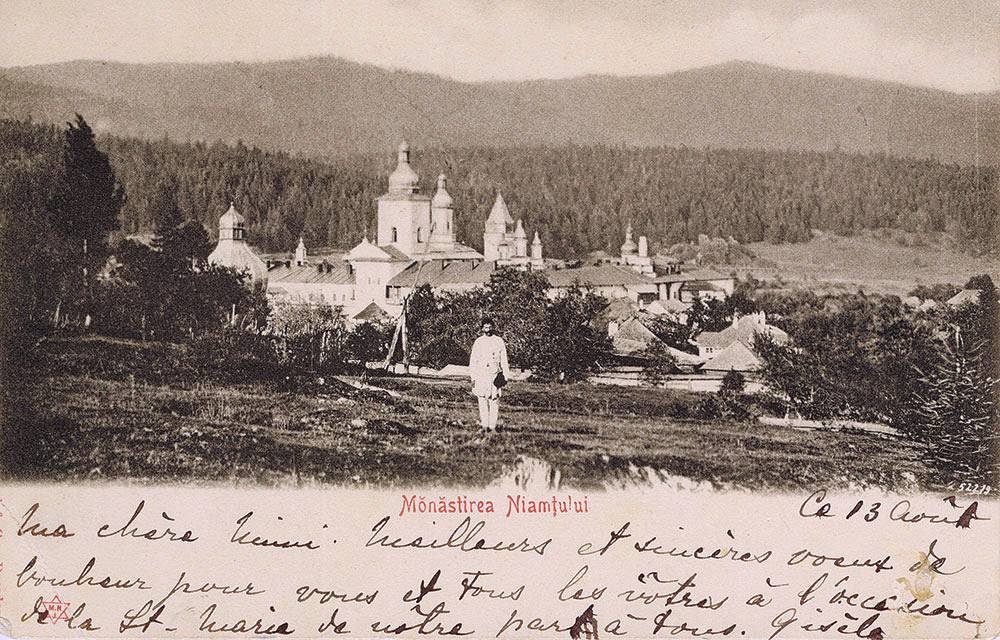 52278
Mŏnăstirea Niamțului
Ce 13 Août
Ma chère Mimi. Meilleurs et sincères voeux de
bonheur pour vous et tous les vôtres à l'occasion
de la St. Marie de nôtre part à tous. Gisèle
M.N.